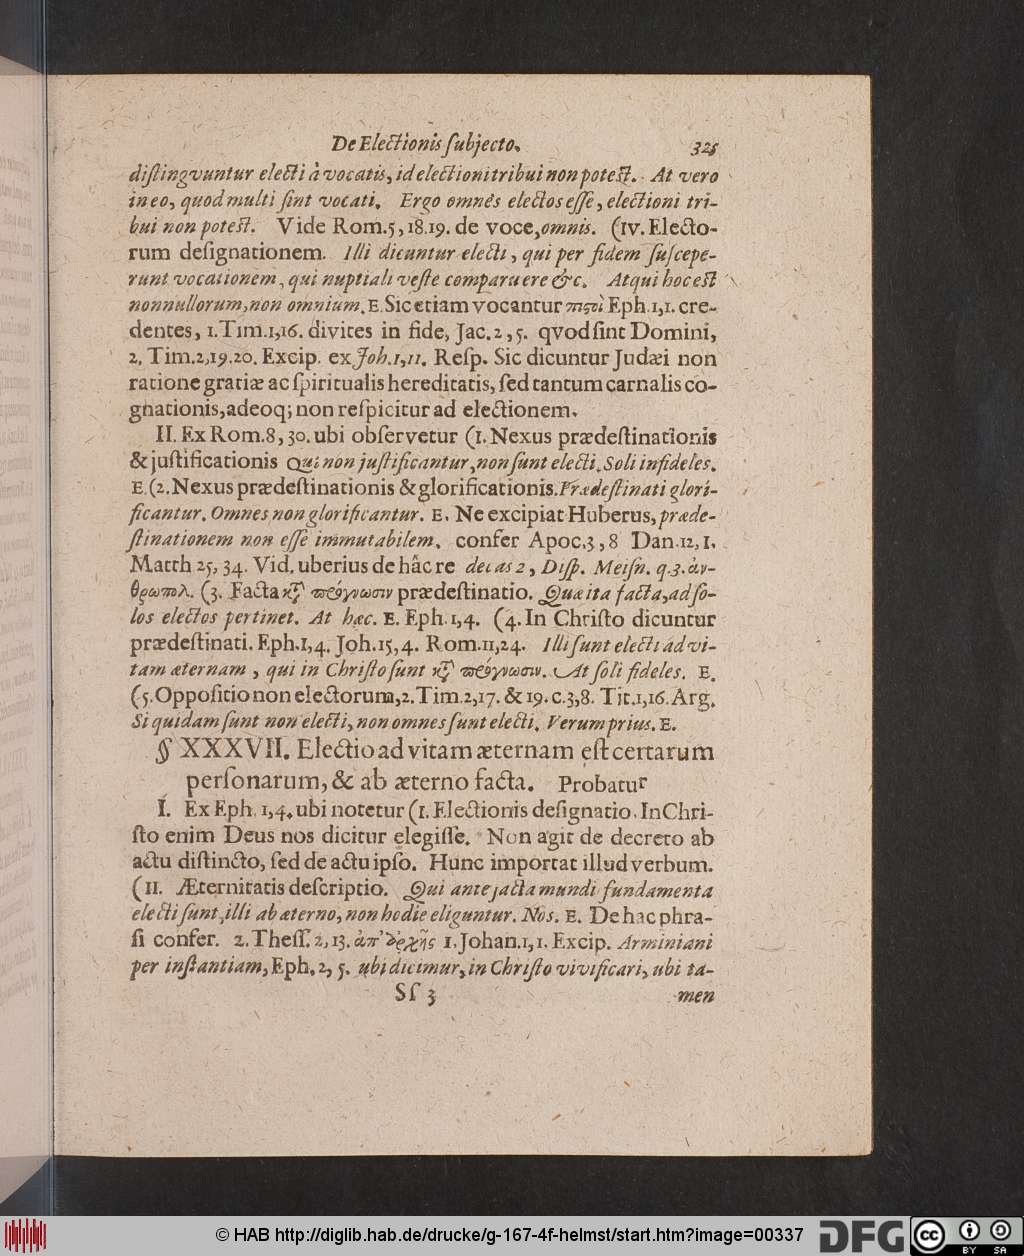 De Electionis ſubjecto. 325
diſtingvuntur electi à vocatis, id electioni tribui non poteſt. At vero
in eo, quod multi ſint vocati. Ergo omnes electos eſſe, electioni tri-
bui non poteſt. Vide Rom. 5, 18. 19. de voce, omnis. (IV. Electo-
rum deſignationem. Illi dicuntur electi, qui per fidem ſuſcepe-
runt vocationem, qui nuptiali veſte comparuere &c. Atqui hoc eſt
nonnullorum, non omnium. E. Sic etiam vocantur πιςοὶ Eph. 1, 1. cre-
dentes, 1. Tim. 1, 16. divites in fide, Jac. 2, 5. qvod ſint Domini,
2. Tim. 2, 19. 20. Excip. ex Joh. 1, 11. Reſp. Sic dicuntur Judæi non
ratione gratiæ ac ſpiritualis hereditatis, ſed tantum carnalis co-
gnationis, adeoq; non reſpicitur ad electionem.
II. Ex Rom. 8, 30. ubi obſervetur (1. Nexus prædeſtinationis
& juſtificationis Qui non juſtificantur, non ſunt electi. Soli infideles.
E. (2. Nexus prædeſtinationis & glorificationis. Prædeſtinati glori-
ficantur. Omnes non glorificantur. E. Ne excipiat Huberus, præde-
ſtinationem non eſſe immutabilem. confer Apoc. 3, 8 Dan. 12, 1.
Matth 25, 34. Vid. uberius de hâc re decas 2, Diſp. Meiſn. q. 3. ἀν-
θρωπολ. (3. Facta κτ̀ πρόγνωσιν prædeſtinatio. Quæ ita facta, ad ſo-
los electos pertinet. At hæc. E. Eph. 1, 4. (4. In Chriſto dicuntur
prædeſtinati. Eph. 1, 4. Joh. 15, 4. Rom. 11, 24. Illi ſunt electi ad vi-
tam æternam, qui in Chriſto ſunt κτ̀ πρόγνωσιν. At ſoli fideles. E.
(5. Oppoſitio non electorum, 2. Tim. 2, 17. & 19. c. 3, 8. Tit. 1, 16. Arg.
Si quidam ſunt non electi, non omnes ſunt electi. Verum prius. E.
§ XXXVII. Electio ad vitam æternam eſt certarum
perſonarum, & ab æterno facta. Probatur
I. Ex Eph. 1, 4. ubi notetur (1. Electionis deſignatio. In Chri-
ſto enim Deus nos dicitur elegiſſe. Non agit de decreto ab
actu diſtincto, ſed de actu ipſo. Hunc importat illud verbum.
(II. Æternitatis deſcriptio. Qui ante jacta mundi fundamenta
electi ſunt, illi ab æterno, non hodie eliguntur. Nos. E. De hac phra-
ſi confer. 2. Theſſ. 2, 13. ἀπ' ἀρχῆς 1. Johan. 1, 1. Excip. Arminiani
per inſtantiam, Eph. 2, 5. ubi dicimur, in Chriſto vivificari, ubi ta-
Sſ 3 men
© HAB http://diglib.hab.de/drucke/g-167-4f-helmst/start.htm?image=00337 DFG cc BY SA